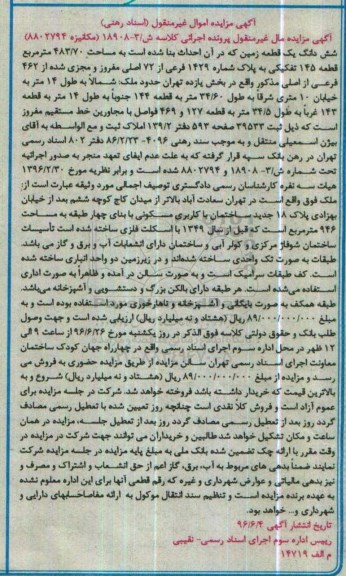 آگهی مزایده اموال غیرمنقول (اسناد رهنی)
آگهی مزایده مال غیرمنقول پرونده اجرائی کلاسه ش/۳-۱۸۹۰۸ (مکانیزه ۸۸۰۲۷۹۴)
شش دانگ یک قطعه زمین که در آن احداث بنا شده است به مساحت ۴۸۳/۷۰ مترمربع
قطعه ۱۴۵ تفکیکی به پلاک شماره ۱۴۲۹ فرعی از ۷۲ اصلی مفروز و مجزی شده از ۴۶۲
فرعی از اصلی مذکور واقع در بخش یازده تهران حدود ملک: شمالاً به طول ۱۴ متر به
خیابان ۱۰ متری شرقاً به طول ۳۴/۶۰ متر به قطعه ۱۴۴ جنوباً به طول ۱۴ متر به قطعه
۱۴۳ غرباً به طول ۳۴/۵ متر به قطعه ۱۲۷ و ۴۶۹ فواصل با مجاورین خط مستقیم مفروز
است که ذیل ثبت ۳۹۵۳۳ صفحه ۵۹۳ دفتر ۱۳۹/۲ املاک ثبت و مع الواسطه به آقای
بیژن اسمعیلی منتقل و به موجب سند رهنی ۴۰۹۶-۸۶/۲/۲۳ دفتر ۸۰۲ اسناد رسمی
تهران در رهن بانک سپه قرار گرفته که به علت عدم ایفای تعهد منجر به صدور اجرائیه
تحت شماره ش/۳-۱۸۹۰۸ و ۸۸۰۲۷۹۴ شده است و برابر نظریه مورخ ۱۳۹۶/۲/۳۰
هیات سه نفره کارشناسان رسمی دادگستری توصیف اجمالی مورد وثیقه عبارت است از:
ملک فوق واقع است در تهران سعادت آباد بالاتر از میدان کاج کوچه ششم بعد از خیابان
بهزادی پلاک ۱۸ جدید ساختمان با کاربری مسکونی با بنای چهار طبقه به مساحت
۹۴۶ مترمربع است که قبل از سال ۱۳۴۹ با اسکلت فلزی ساخته شده است تأسیسات
ساختمان شوفاژ مرکزی و کولر آبی و ساختمان دارای انشعابات آب و برق و گاز می باشد.
طبقات به صورت تک واحدی ساخته شده‌اند و در زیرزمین دو واحد انباری ساخته شده
است. کف طبقات سرامیک است و به صورت سالن در آمده و ظاهراً به صورت اداری
استفاده می‌شده است. هر طبقه دارای بالکن بزرگ و دستشویی و آشپزخانه می‌باشد.
طبقه همکف به صورت بایگانی و آشپزخانه و ناهارخوری مورد استفاده بوده است و به
مبلغ ۸۹/۰۰۰/۰۰۰/۰۰۰ ریال (هشتاد و نه میلیارد ریال) ارزیابی شده است و جهت وصول
طلب بانک و حقوق دولتی کلاسه فوق الذکر در روز یکشنبه مورخ ۹۶/۶/۲۶ از ساعت ۹ الی
۱۲ ظهر در محل اداره سوم اجرای اسناد رسمی واقع در چهارراه جهان کودک ساختمان
معاونت اجرای اسناد رسمی تهران سالن مزایده از طریق مزایده حضوری به فروش می
رسد و مزایده از مبلغ ۸۹/۰۰۰/۰۰۰/۰۰۰ ریال (هشتاد و نه میلیارد ریال) شروع و به
بالاترین قیمت که خریدار داشته باشد فروخته خواهد شد. شرکت در جلسه مزایده برای
عموم آزاد است و فروش کلاً نقدی است چنانچه روز تعیین شده با تعطیل رسمی مصادف
گردد روز بعد از تعطیل رسمی مصادف گردد روز بعد از تعطیل جلسه، مزایده در همان
ساعت و مکان تشکیل خواهد شد طالبین و خریداران می توانند جهت شرکت در مزایده در
وقت مقرر با ارائه چک تضمین شده بانک ملی به مبلغ پایه مزایده در جلسه مزایده شرکت
نمایند ضمناً بدهی های مربوط به آب، برق، گاز اعم از حق انشعاب و اشتراک و مصرف و
نیز بدهی مالیاتی و عوارض شهرداری و غیره که رقم قطعی آنها برای این اداره معلوم نشده
به عهده برنده مزایده است و تنظیم سند انتقال موکول به ارائه مفاصاحسابهای دارایی و
شهرداری و... خواهد بود.
تاریخ انتشار آگهی ۹۶/۶/۴
رییس اداره سوم اجرای اسناد رسمی- نقیبی
م الف ۱۴۷۱۹